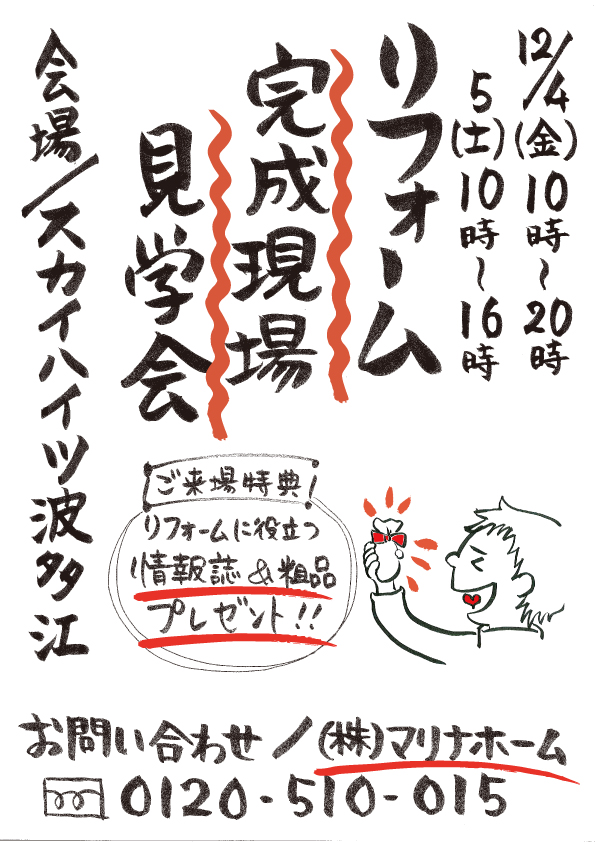 12/4(金)10時～20時
5(土)10時～16時
リフォーム
完成現場
見学会
会場/スカイハイツ波多江
ご来場特典!
リフォームに役立つ
情報誌&粗品
プレゼント!!
お問い合わせ/(株)マリナホーム
0120-510-015